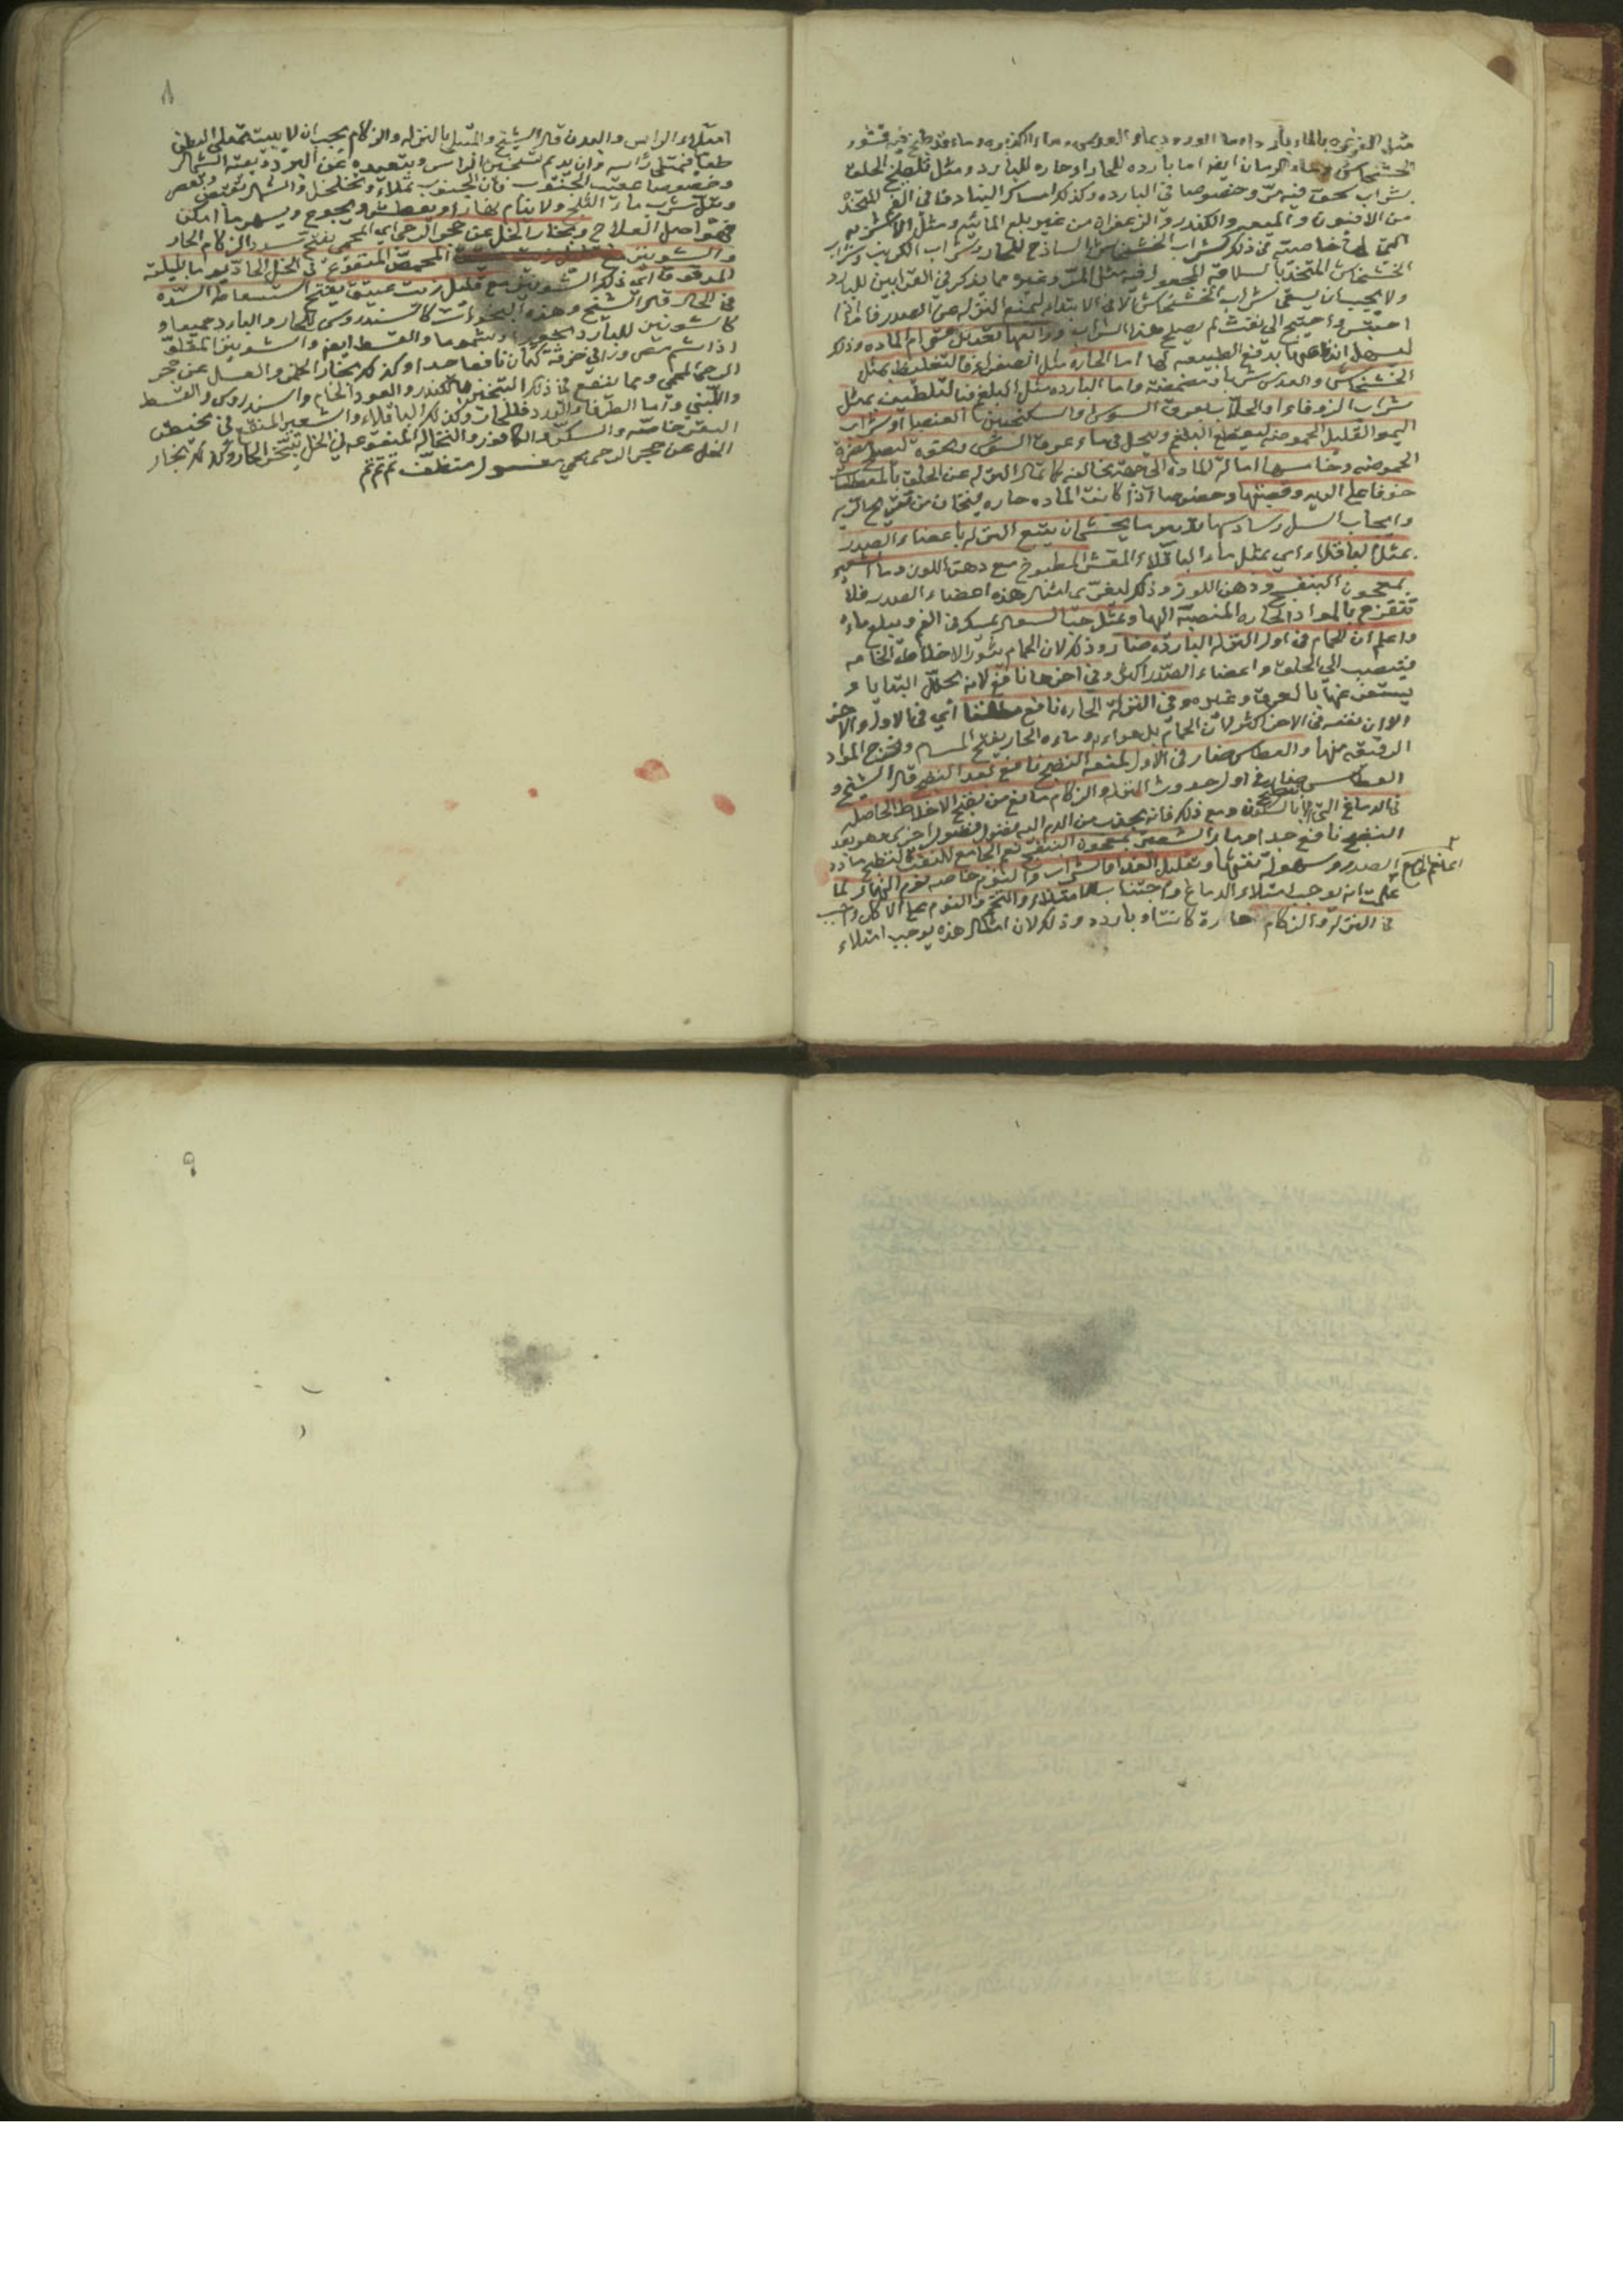 مثل الغرغره بالماء البارد وماء الورد وبماء العدس وماء الكزبره وماء قد طبخ فيه قشور
الخشخاش وماء الرمان ايضا اما بارده للحار او حاره للبارد ومثل تلطيخ الحلق
بشراب سحق فيه مر وخصوصا في البارده وكذلك امساك البنادق في الفم المتخذه
من الافيون والميعه والكندر والزعفران من غير بلع المائيه ومثل الاشربه
التي لها خاصيه في ذلك كشراب الخشخاش الساذج للحار وشراب الكرنب وشراب
الخشخاش المتخذ بالسلاقه المجعول فيه مثل المر وغيره مما يذكر في القرابين للبارد
ولا يجب ان يسقى شراب الخشخاش الا في الابتداء ليمنع النزله عن الصدر فاما اذا
احتبس واحتيج الى نفث لم يصلح هذا الشراب ورابعها تعديل قوام الماده وذلك
ليسهل اندفاعها بدفع الطبيعه لها اما الحاره مثل الصفراء فالتغليظ بمثل
الخشخاش والعدس شربا ومضمضة واما البارده مثل البلغم فالتلطيف بمثل
شراب الزوفا او الجلاب بعروق السوس والسكنجبين العنصلي او شراب
الليمو القليل الحموضه ليقطع البلغم ويحل في ماء عروق السوس ونحوه ليصلح مضرة
الحموضه وخامسها امالة الماده الى جهة مخالفه كامالة النزله عن الحلق بالمعطسات
خوفا على الريه وقصبتها وخصوصا اذا كانت الماده حاره يخاف من تقريح الريه
وايجاب السل وسادسها تدبير ما يخشى ان يتبع النزله باعضاء الصدر
بمثل الباقلاء اي بمثل ماء الباقلاء المقشر المطبوخ مع دهن اللوز وماء الشعير
بمعجون البنفسج ودهن اللوز وذلك ليغري بامثال هذه اعضاء الصدر فلا
تتقرح بالمواد الحاره المنصبة اليها وبمثل حب السعال يمسك في الفم ويبلع ماءه
واعلم ان الحمام في اول النزله البارده ضار وذلك لان الحمام يثور الاخلاط الخامه
فينصب الى الحلق واعضاء الصدر اكثر وفي اخرها نافع لانه يحلل البقايا و
يستفرغها بالعرق وغيره وفي النزلة الحاره نافع مطلقا اي في الاول والاخر
الا ان نفعه في الاخر اكثر لان الحمام بل هواءه وماءه الحار يفتح المسام ويخرج المواد
الرقيقه منها والعطاس ضار في الاول لمنعه النضج نافع بعد النضج قال الشيخ و
العطاس ضار في اول حدوث النزله والزكام مانع من نضج الاخلاط الحاصله
في الدماغ التي لا تنضج الا بالسكون ومع ذلك فانه يجذب من الدم اليه فضول فضول اخرى وهو بعد
النضج نافع جدا وماء الشعير بمعجون البنفسج نعم الجامع للنفث لتنضج مادة
الصدر وسهولة نفثها وتقليل الغذاء والشراب والنوم خاصه نوم النهار لما
علمت انه يوجب امتلاء الدماغ واجتناب الامتلاء والتخم والنوم على الاكل واجب
في النزلة والزكام حارة كانت او بارده وذلك لان امثال هذه يوجب امتلاء
٨
امتلاء الراس والبدن قال الشيخ والمبتلى بالنزله والزكام يجب ان لا يبيت ممتلى البطن
طعاما فيمتلى راسه وان يديم تسخين الراس وتبعيده عن البرد ويقيه الشمال
وخصوصا عقيب الجنوب فان الجنوب يملاء ويخلخل والشمال يقبض ويعصر
ويقل شرب ماء الثلج ولا ينام نهارا ويعطش ويجوع ويسهر ما امكن
فهو اصل العلاج وبخار الخل عن حجر الرحى اي المحمى يفتح سدد الزكام الحار
والشونيز المحمص المنقوع في الخل الحاذق يوما بليلته
المدقوق اي ذلك الشونيز مع قليل زيت عتيق يفتح استعاطا السده
في الحال قال الشيخ وهذه البخورات كالسندروس للحار والبارد جميعا و
كالشونيز للبارد بخورا ومشموما والقسط ايضا والشونيز المقلو
اذا شم مصرورا في خرقة كتان نافعا جدا وكذلك بخار الخمر والعسل عن حجر
الرحى المحمى ومما ينفع في ذلك التبخير بالكندر والعود الخام والسندروس والقسط
واللبنى واما الطرفا والورد فللحار وكذلك الباقلاء والشعير المنقع في مخيض
البقر خاصه والسكر والكافور والنخاله المنقوعه في الخل يبخر الحار وكذلك بخار
الخل عن حجر الرحى محمى مغسول منظف تم تم تم
٩